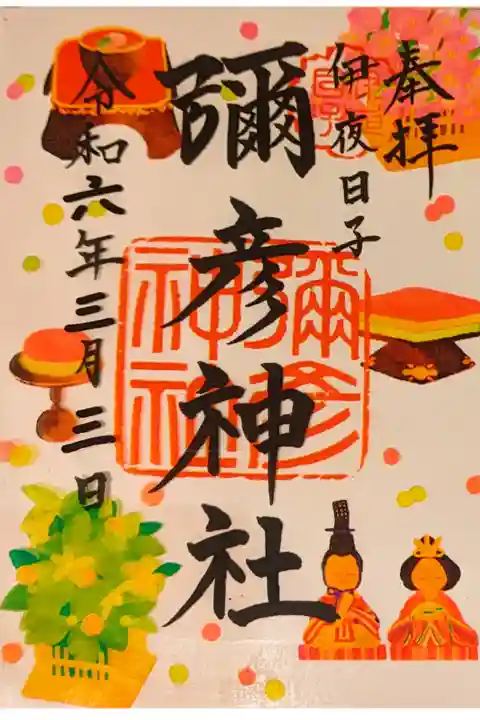 奉拝
伊夜日子
彌彦神社
令和六年三月三日
彌彦神社